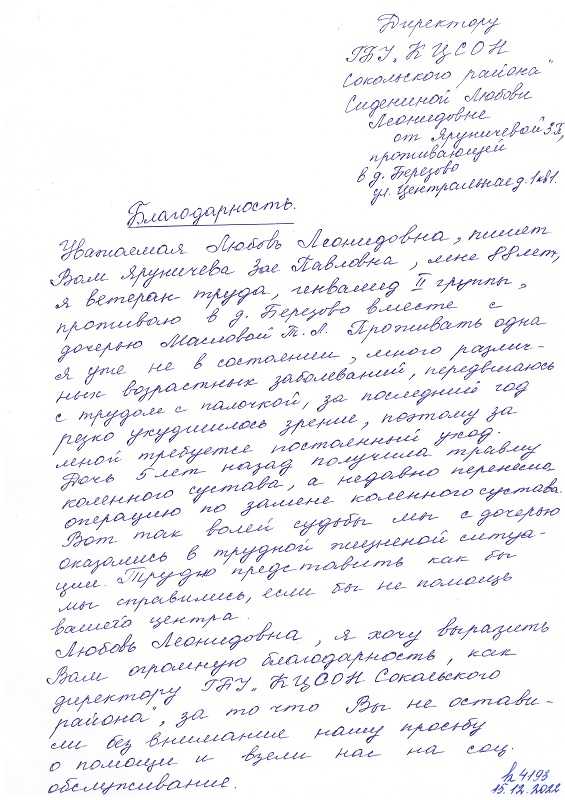 Директору
ГБУ „КЦСОН
Сокольского района"
Сидениной Любови
Леонидовне
от Яруничевой З.П,
проживающей
в д. Березово
ул. Центральная д. 1 кв1.
Благодарность.
Уважаемая Любовь Леонидовна, пишет
Вам Яруничева Зоя Павловна, мне 88 лет,
я ветеран труда, инвалид II группы,
проживаю в д. Березово вместе с
дочерью Масловой Т.А. Проживать одна
я уже не в состоянии, много различ-
ных возрастных заболеваний, передвигаюсь
с трудом с палочкой, за последний год
резко ухудшилось зрение, поэтому за
мной требуется постоянный уход.
Дочь 5 лет назад получила травму
коленного сустава, а недавно перенесла
операцию по замене коленного сустава.
Вот так волей судьбы мы с дочерью
оказались в трудной жизненой ситуа-
ции. Трудно представить как бы
мы справились, если бы не помощь
вашего центра.
Любовь Леонидовна, я хочу выразить
Вам огромную благодарность, как
директору ГБУ „КЦСОН Сокольского
района", за то что Вы не остави-
ли без внимания нашу просьбу
о помощи и взяли нас на соц.
обслуживание.
4193
15.12.2022